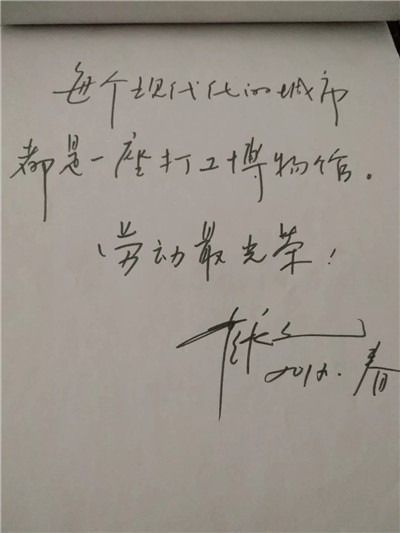 每个现代化的城市
都是一座打工博物馆。
劳动最光荣!
春